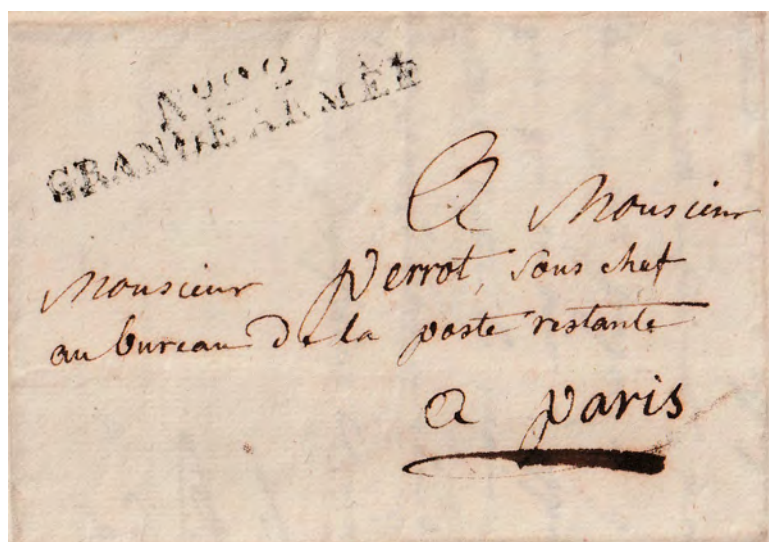 Nº 22
GRANDE ARMÉE
A Monsieur
Monsieur Perrot, sous chef
au bureau de la poste restante
a paris